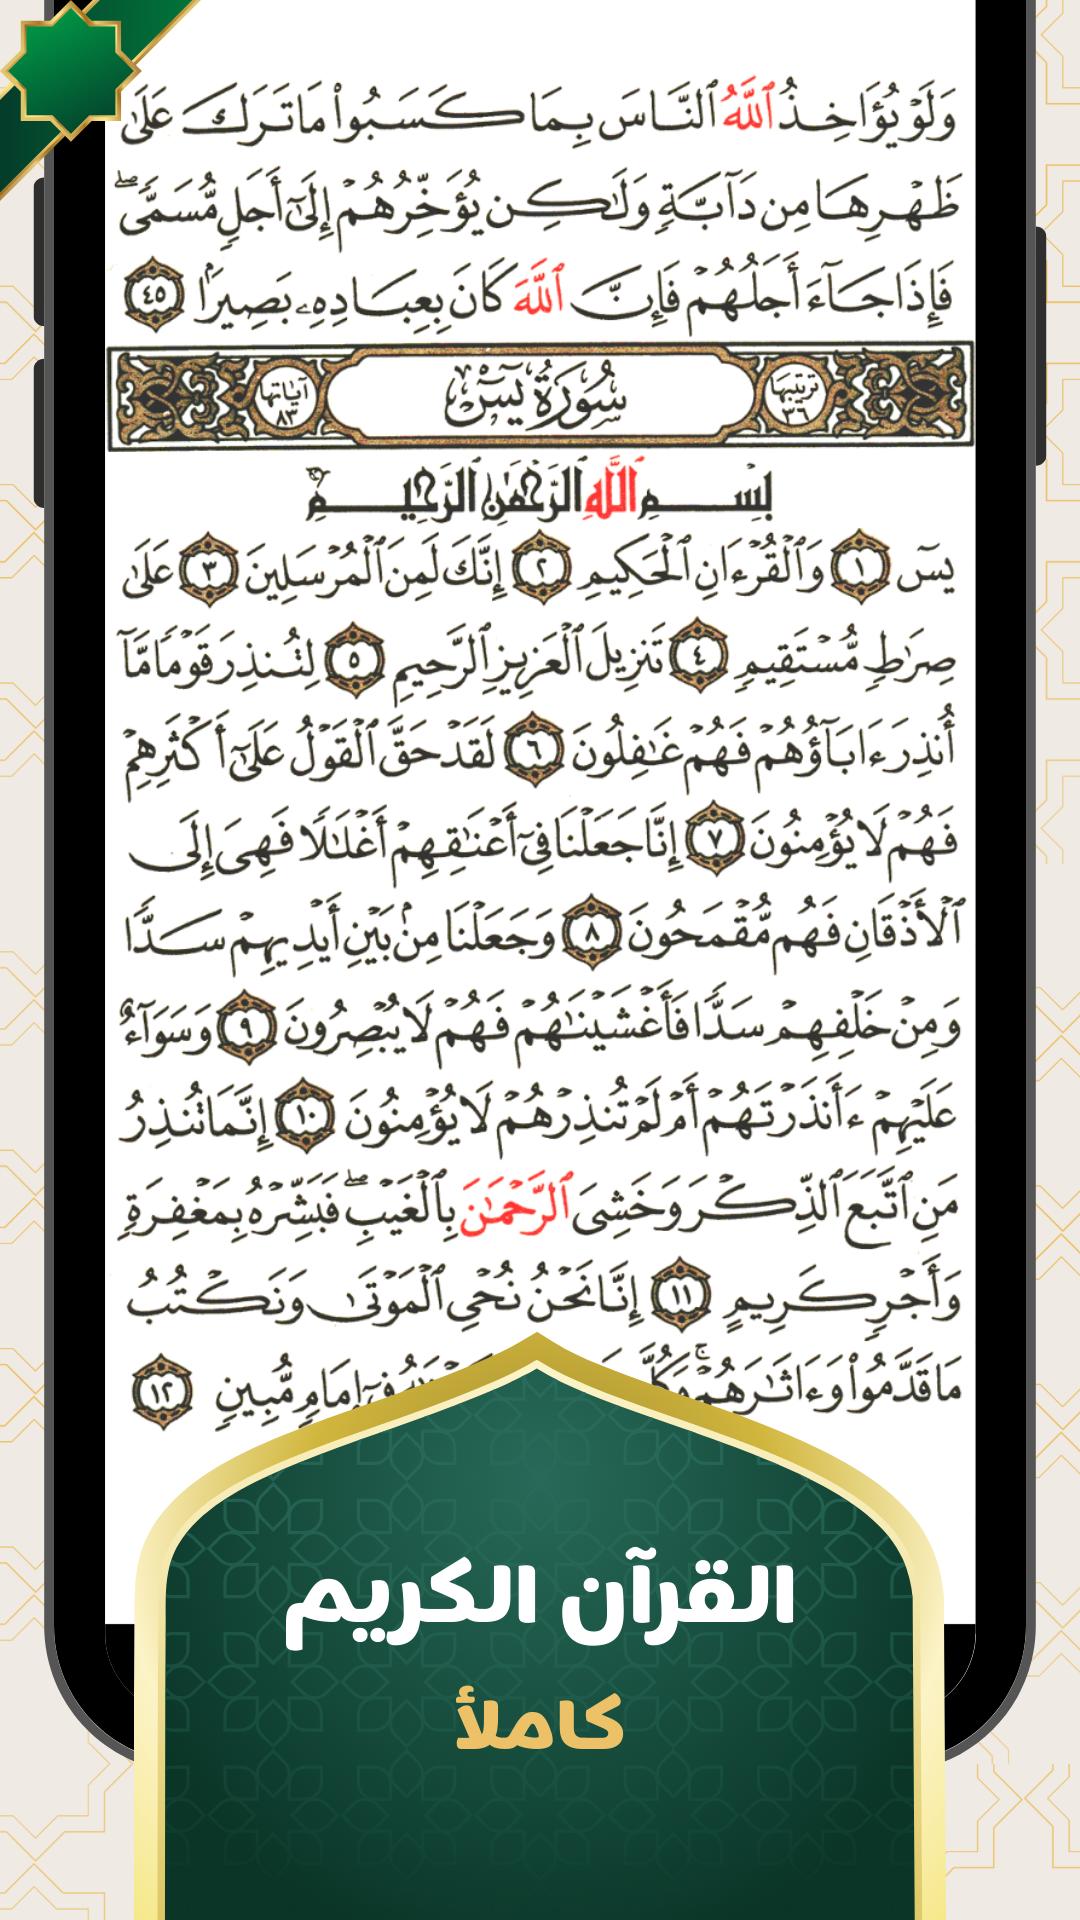 وَلَوْ يُؤَاخِذُ ٱللَّهُ ٱلنَّاسَ بِمَا كَسَبُوا۟ مَا تَرَكَ عَلَىٰ
ظَهْرِهَا مِن دَآبَّةٍ وَلَـٰكِن يُؤَخِّرُهُمْ إِلَىٰٓ أَجَلٍ مُّسَمًّى ۖ
فَإِذَا جَآءَ أَجَلُهُمْ فَإِنَّ ٱللَّهَ كَانَ بِعِبَادِهِۦ بَصِيرًۢا ٤٥
ترتيبها ٣٦ سُورَةُ يسٓ آياتها ٨٣
بِسْمِ ٱللَّهِ ٱلرَّحْمَـٰنِ ٱلرَّحِيمِ
يسٓ ١ وَٱلْقُرْءَانِ ٱلْحَكِيمِ ٢ إِنَّكَ لَمِنَ ٱلْمُرْسَلِينَ ٣ عَلَىٰ
صِرَٰطٍ مُّسْتَقِيمٍ ٤ تَنزِيلَ ٱلْعَزِيزِ ٱلرَّحِيمِ ٥ لِتُنذِرَ قَوْمًا مَّآ
أُنذِرَ ءَابَآؤُهُمْ فَهُمْ غَـٰفِلُونَ ٦ لَقَدْ حَقَّ ٱلْقَوْلُ عَلَىٰٓ أَكْثَرِهِمْ
فَهُمْ لَا يُؤْمِنُونَ ٧ إِنَّا جَعَلْنَا فِىٓ أَعْنَـٰقِهِمْ أَغْلَـٰلًا فَهِىَ إِلَى
ٱلْأَذْقَانِ فَهُم مُّقْمَحُونَ ٨ وَجَعَلْنَا مِنۢ بَيْنِ أَيْدِيهِمْ سَدًّا
وَمِنْ خَلْفِهِمْ سَدًّا فَأَغْشَيْنَـٰهُمْ فَهُمْ لَا يُبْصِرُونَ ٩ وَسَوَآءٌ
عَلَيْهِمْ ءَأَنذَرْتَهُمْ أَمْ لَمْ تُنذِرْهُمْ لَا يُؤْمِنُونَ ١٠ إِنَّمَا تُنذِرُ
مَنِ ٱتَّبَعَ ٱلذِّكْرَ وَخَشِىَ ٱلرَّحْمَـٰنَ بِٱلْغَيْبِ ۖ فَبَشِّرْهُ بِمَغْفِرَةٍ
وَأَجْرٍ كَرِيمٍ ١١ إِنَّا نَحْنُ نُحْىِ ٱلْمَوْتَىٰ وَنَكْتُبُ
مَا قَدَّمُوا۟ وَءَاثَـٰرَهُمْ ۚ وَكُلَّ فِىٓ إِمَامٍ مُّبِينٍ ١٢
القرآن الكريم
كاملأ